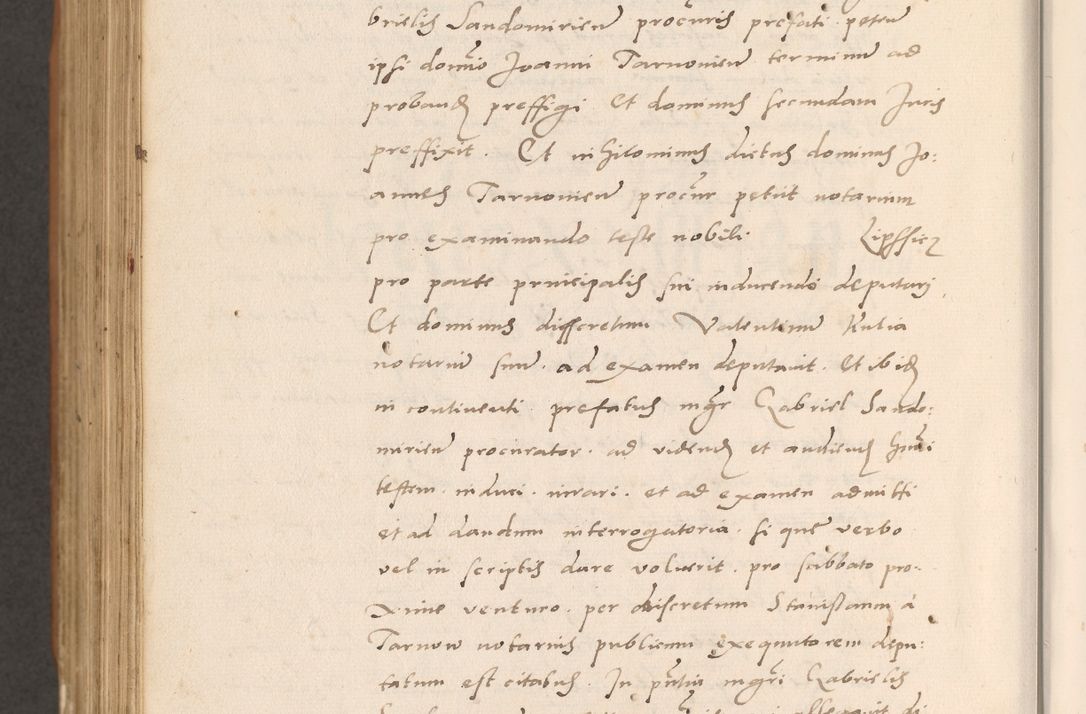 brielis Sandomirien procuris prefati peten
ipsi domino Joanni Tarnovien terminum ad
proband preffigi Et dominus secundam Juris
preffixit. Et nihilominus dictus dominus Jo:
annes Tarnovien procur petiit notarium
pro examinando teste nobili Lipssicz
pro parte principalis sui inducendo deputari
Et dominus disscretum Valentinum Kulia
notarium suum ad examen deputavit. Et ibid
in continenti prefatus mgr Gabriel Sando:
mirien procurator. ad vidend et audiend hmoi
testem. induci. iurari. et ad examen admitti
et ad dandum interrogatoria. si que verbo
vel in scriptis dare voluerit. pro sabbato pro:
xime venturo. per discretum Stanislaum a
Tarnow notarius publicum exequutorem depu:
tatum est citatus. In pntia mgri Gabrielis